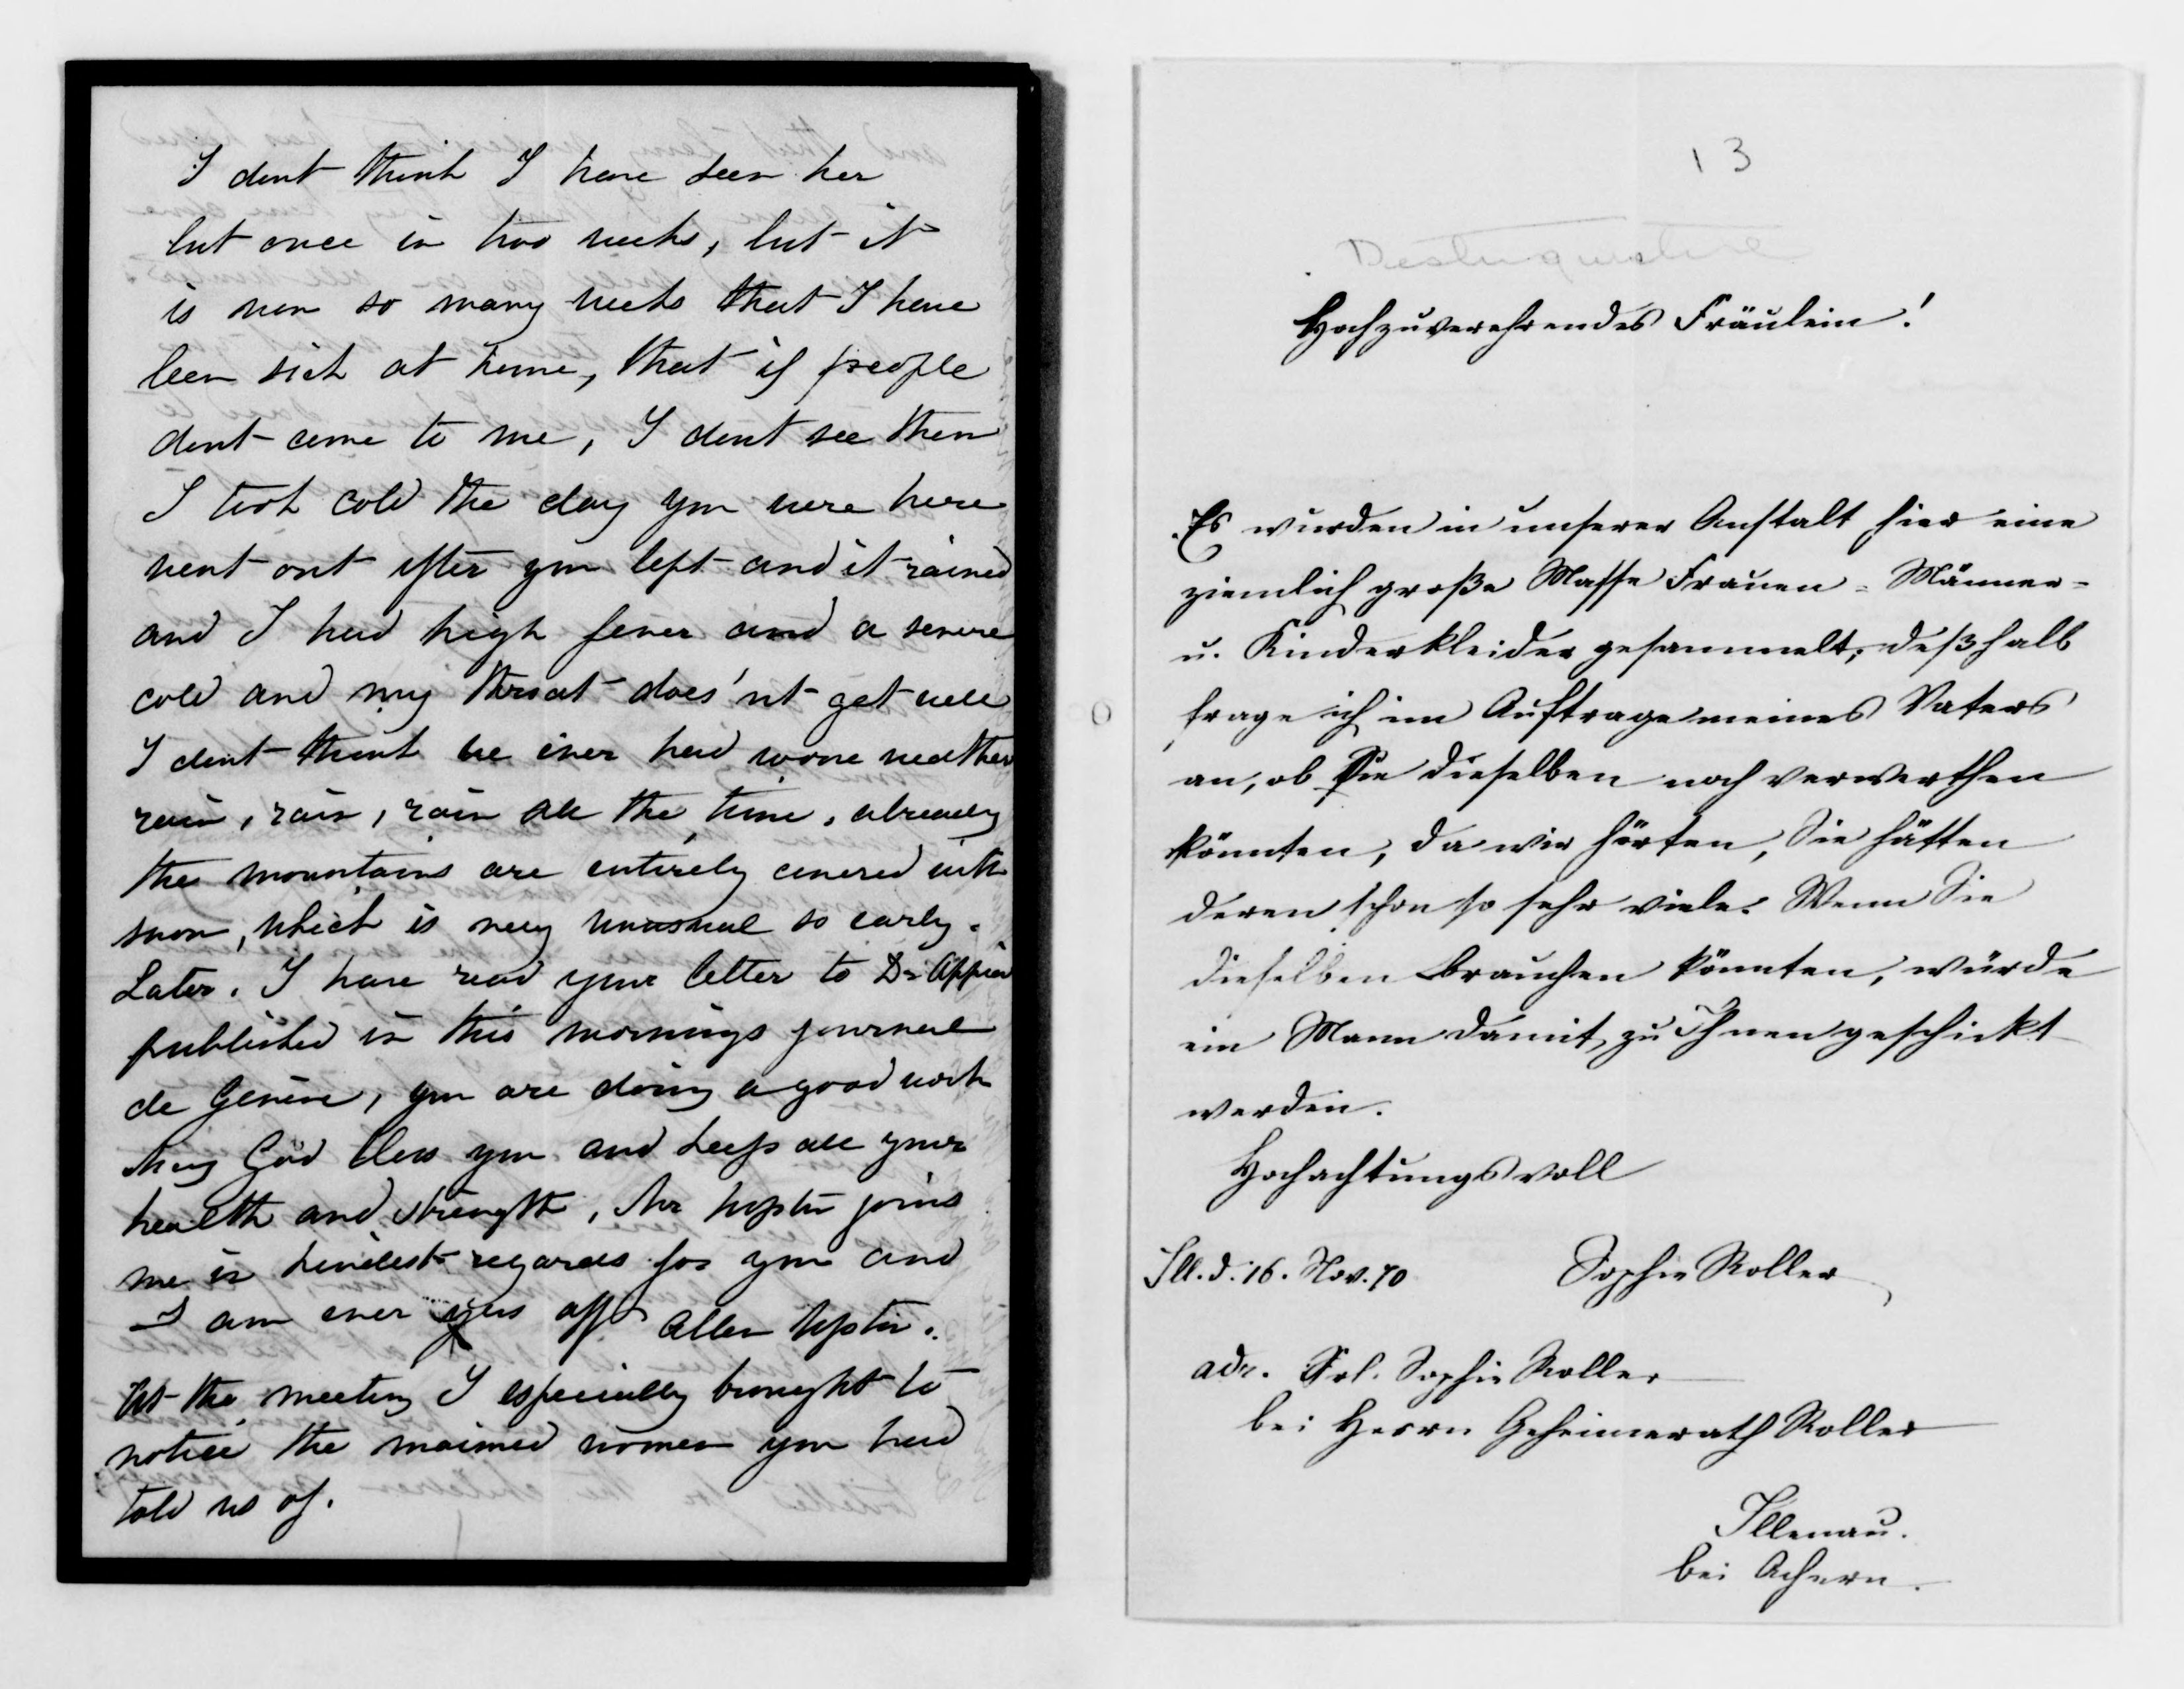 I dont think I have seen her
but once in two weeks, but it
is now so many weeks that I have
been sick at home, that if people
dont come to me, I dont see them
I took cold the day you were here
went out after you left and it rained
and I had high fever and a severe
cold and my throat does'nt get well
I dont think we ever had worse weather
rain, rain, rain all the time, already
the mountains are entirely covered with
snow, which is very unusual so early.
Later. I have read your letter to Dr Appia
published in this mornings journal
de Genève, you are doing a good work
may God bless you and keep all your
health and strength, Mr Upton joins
me in kindest regards for you and
I am ever yrs aff Upton.
At the meeting I especially brought to
notice the maimed women you had
told us of.
13
Hochzuverehrendes Fräulein!
Es wurden in unserer Anstalt hier eine
ziemlich große Masse Frauen- Männer-
u. Kinderkleider gesammelt, deßhalb
frage ich im Auftrage meines Vaters
an, ob Sie dieselben noch verwerthen
könnten, da wir hörten, Sie hätten
deren schon so sehr viele. Wenn Sie
dieselben brauchen könnten, würde
ein Mann damit zu Ihnen geschickt
werden.
Hochachtungsvoll
Ill. d. 16. Nov. 70 Sophie Roller
adr. Frl. Sophie Roller
bei Herrn Geheimerath Roller
Illenau.
bei Achern.